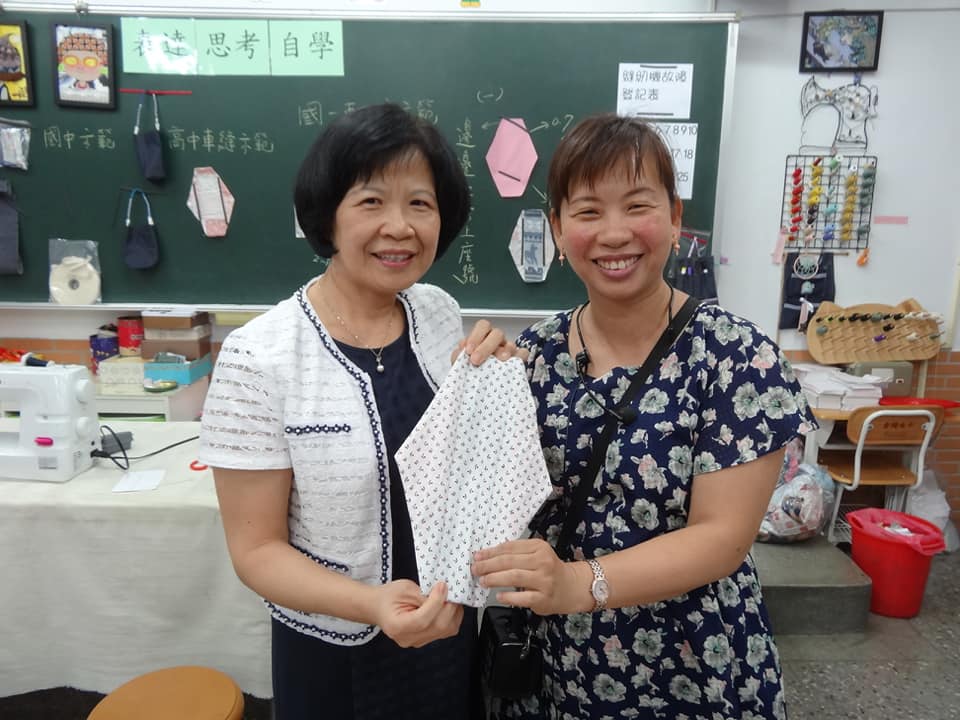 表達 思考 自學
國中示範
高中車縫示範
國一
示範
(一)
0.7
邊邊
座號
縫紉機故障
登記表
7 8 9 10
17.18
25